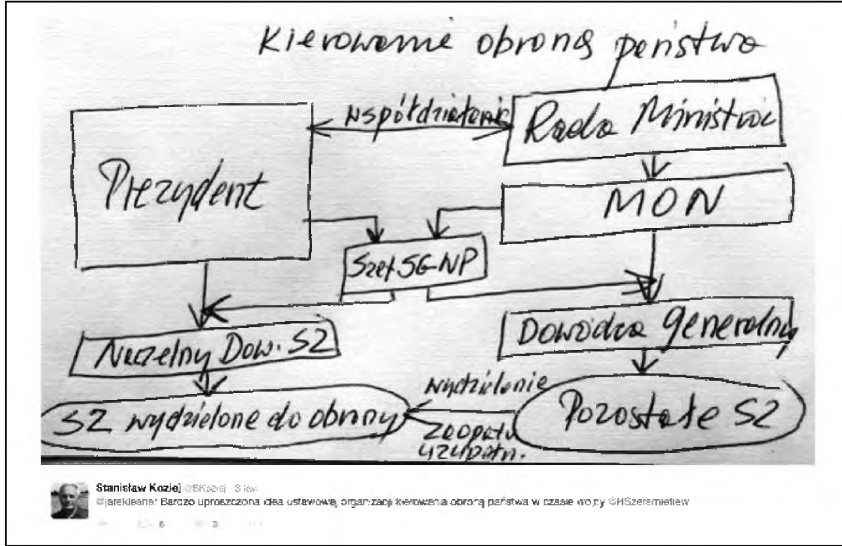 Kierowanie obroną państwa
współdziałanie
Rada Ministrów
Prezydent
MON
Szef SG WP
Naczelny Dow. SZ
Dowódca Generalny
wydzielenie
SZ wydzielone do obrony
Pozostałe SZ
zaopatr.
uzupełn.
Stanisław Koziej @SKoziej · 3 kw
@jarekleaner Bardzo uproszczona idea ustawowej organizacji kierowania obroną państwa w czasie wojny @RSzeremietiew
6
3